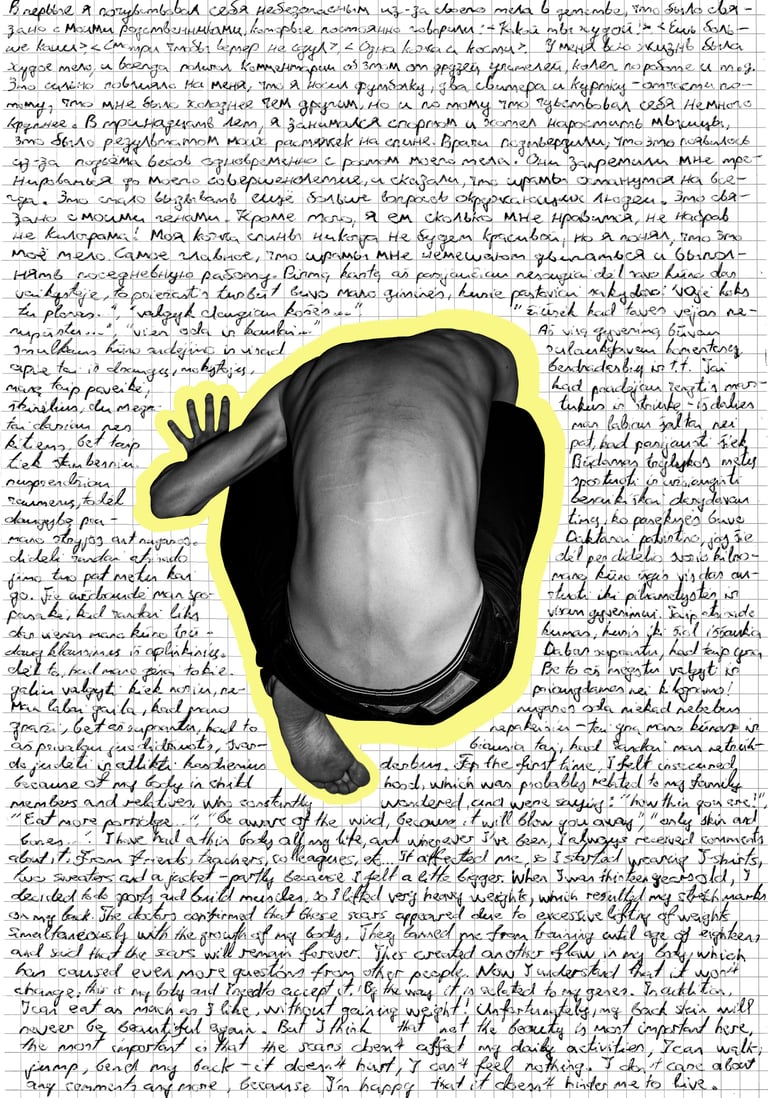 Впервые я почувствовал себя небезопасным из-за своего тела в детстве, что было свя-
зано с моими родственниками, которые постоянно говорили: "Какой ты худой!" "Ешь боль-
ше каши" "Смотри чтобы ветер не сдул" "Одна кожа и кости". У меня всю жизнь было
худое тело, и всегда получал комментарии об этом от друзей, учителей, колег по работе и т.д.
Это сильно повлияло на меня, что я носил футболку, два свитера и куртку - отчасти по-
тому, что мне было холоднее чем другим, но и по тому что чувствовал себя немного
крупнее. В тринадцать лет, я занимался спортом и хотел наростить мышцы,
это было результатом моих растяжек на спине. Врачи подтвердили, что это появилось
из-за подъёма весов одновременно с ростом моего тела. Они запретили мне тре-
нироваться до моего совершенолетия, и сказали, что шрамы останутся на все-
гда. Это стало вызывать ещё больше вопросов окружающих людей. Это свя-
зано с моими генами. Кроме того, я ем сколько мне нравится, не набрав
не килограма! Моя кожа спины никогда не будет красивой, но я понял, что это
моё тело. Самое главное, что шрамы мне не мешают двигаться и выпол-
нять поседневную работу. Pirmą kartą aš pasijaučiau nesaugiai dėl savo kūno dar
vaikystėje, to priežastis turbūt buvo mano giminės, kurie pastoviai sakydavo: "Vajė koks
tu plonas.", "valgyk daugiau košės..." "Žiūrėk kad tavęs vėjas ne-
nupūstų...", "vien oda ir kaulai..." Aš visą gyvenimą buvau
smulkaus kūno sudėjimo ir visad sulaukdavau komentarų
apie tai iš draugų, mokytojų, bendradarbių ir t.t. Tai
mane taip paveikė, kad pradėjau rengtis mar-
škinėlius, du mega- ztukus ir striukę - iš dalies
tai dariau nes man labiau šalta nei
kitiems, bet taip pat, kad pasijausti šiek
tiek stambesniu. Būdamas trylikos metų
nusprendžiau sportuoti ir užsiauginti
raumenis, todėl beraikiškai darydavau
daugybę pra- timų, ko pasekmės buvo
mano strijos ant nugaros. Daktarai patvirtino, jog šie
dideli randai atsirado dėl per didelio svorio kilno-
jimo tuo pat metu kai mano kūno ūgis vis dar au-
go. Jie uždraudė man spo- rtuoti iki pilnametystės ir
pasakė, kad randai liks visam gyvenimui. Taip atsirado
dar vienas mano kūno trū- kumas, kuris iki šiol iššaukia
daug klausimų iš aplinkinių. Dabar suprantu, kad taip yra
dėl to, kad mano genai tokie. Be to aš mėgstu valgyti ir
galiu valgyti kiek noriu, ne- priaugdamas nei kilogramo!
Man labai gaila, kad mano nugaros oda niekad nebebus
graži, bet aš suprantu, kad to nepakeisiu - tai yra mano kūnas ir
aš privalau jį Svar- biausia tai, kad randai man netruk-
do judėti ir atlikti kasdienius darbus. For the first time, I felt insecured
because of my body in child hood, which was probably related to my family
members and relatives, who constantly wondered, and were saying: "how thin you are!",
"Eat more porridge...", "Be aware of the wind, because it will blow you away", "only skin and
bones...". I have had a thin body all my life, and wherever I've been, I always received comments
about it. From friends, teachers, colleagues, etc... It affected me, so I started wearing T-shirts,
two sweaters and a jacket - partly because I felt a little bigger. When I was thirteen years old, I
decided to do sports and build muscles, so I lifted very heavy weights, which resulted my stretch marks
on my back. The doctors confirmed that these scars appeared due to excessive lifting of weights
simultaneously with the growth of my body. They banned me from training until age of eighteen
and said that the scars will remain forever. This created another flaw in my body, which
has caused even more questions from other people. Now I understand that it won't
change: this is my body and I need to accept it! By the way, it is related to my genes. In addition,
I can eat as much as I like, without gaining weight! Unfortunately, my back skin will
neveer be beautiful again. But I think that not the beauty is most important here,
the most important is that the scars doesn't affect my daily activities, I can walk,
jump, bend my back - it doesn't hurt, I can't feel nothing. I don't care about
any comments any more, because I'm happy that it doesn't hinder me to live.